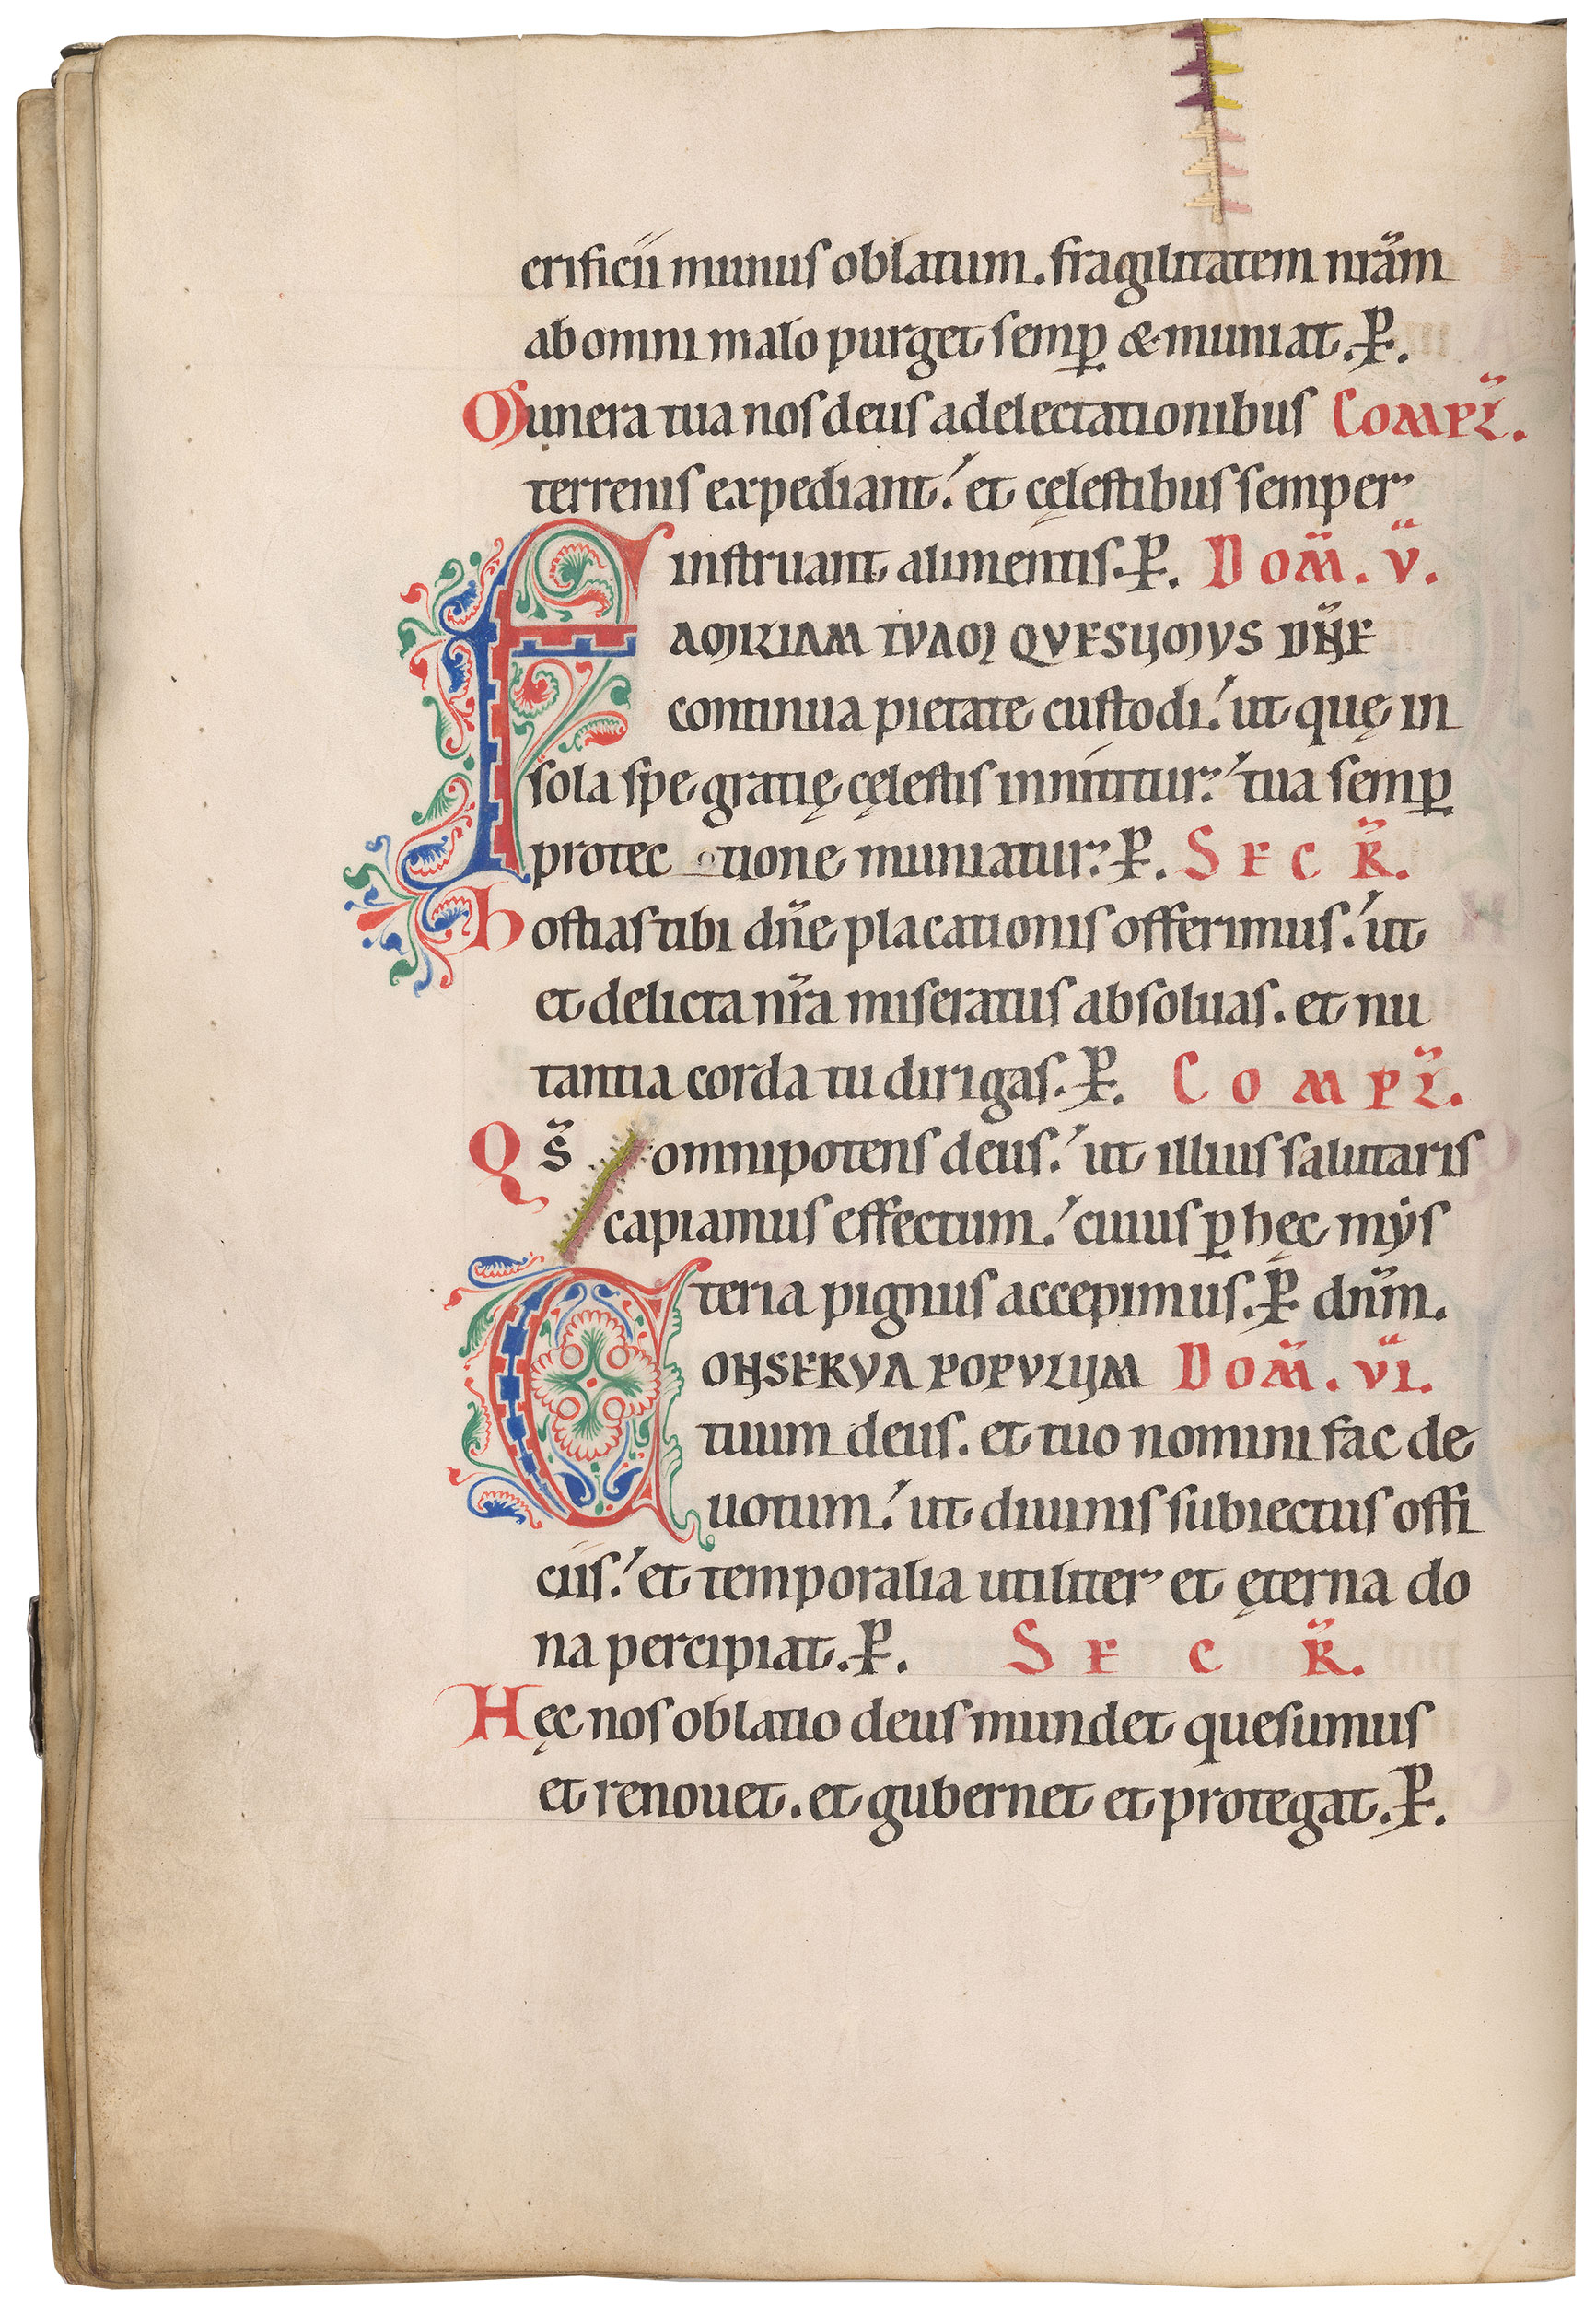 crificii munus oblatum. fragilitatem nr̄am
ab omni malo purget semꝑ & muniat. P̶.
Munera tua nos deus a delectationibus COMPL̄.
terrenis expediant! et cęlestibus semper
instruant alimentis. P̶. DOM̄. V̄.
FAMILIAM TUAM QUESUMUS DN̄E
continua pietate custodi! ut quę in
sola spe gratię cęlestis innititur! tua semꝑ
protec tione muniatur. P̶. SECR̄.
Hostias tibi dn̄e placationis offerimus! ut
et delicta nr̄a miseratus absoluas. et nu
tantia corda tu dirigas. P̶. COMPL̄.
Qs̄ omnipotens deus! ut illius salutaris
capiamus effectum! cuius ꝑ hęc mys
teria pignus accepimus. P̶ dn̄m.
CONSERVA POPULUM DOM̄. VĪ.
tuum deus. et tuo nomini fac de
uotum! ut diuinis subiectus offi
ciis! et temporalia utiliter et ęterna do
na percipiat. P̶. SECR̄.
Hęc nos oblatio deus mundet quesumus
et renouet. et gubernet et protegat. P̶.